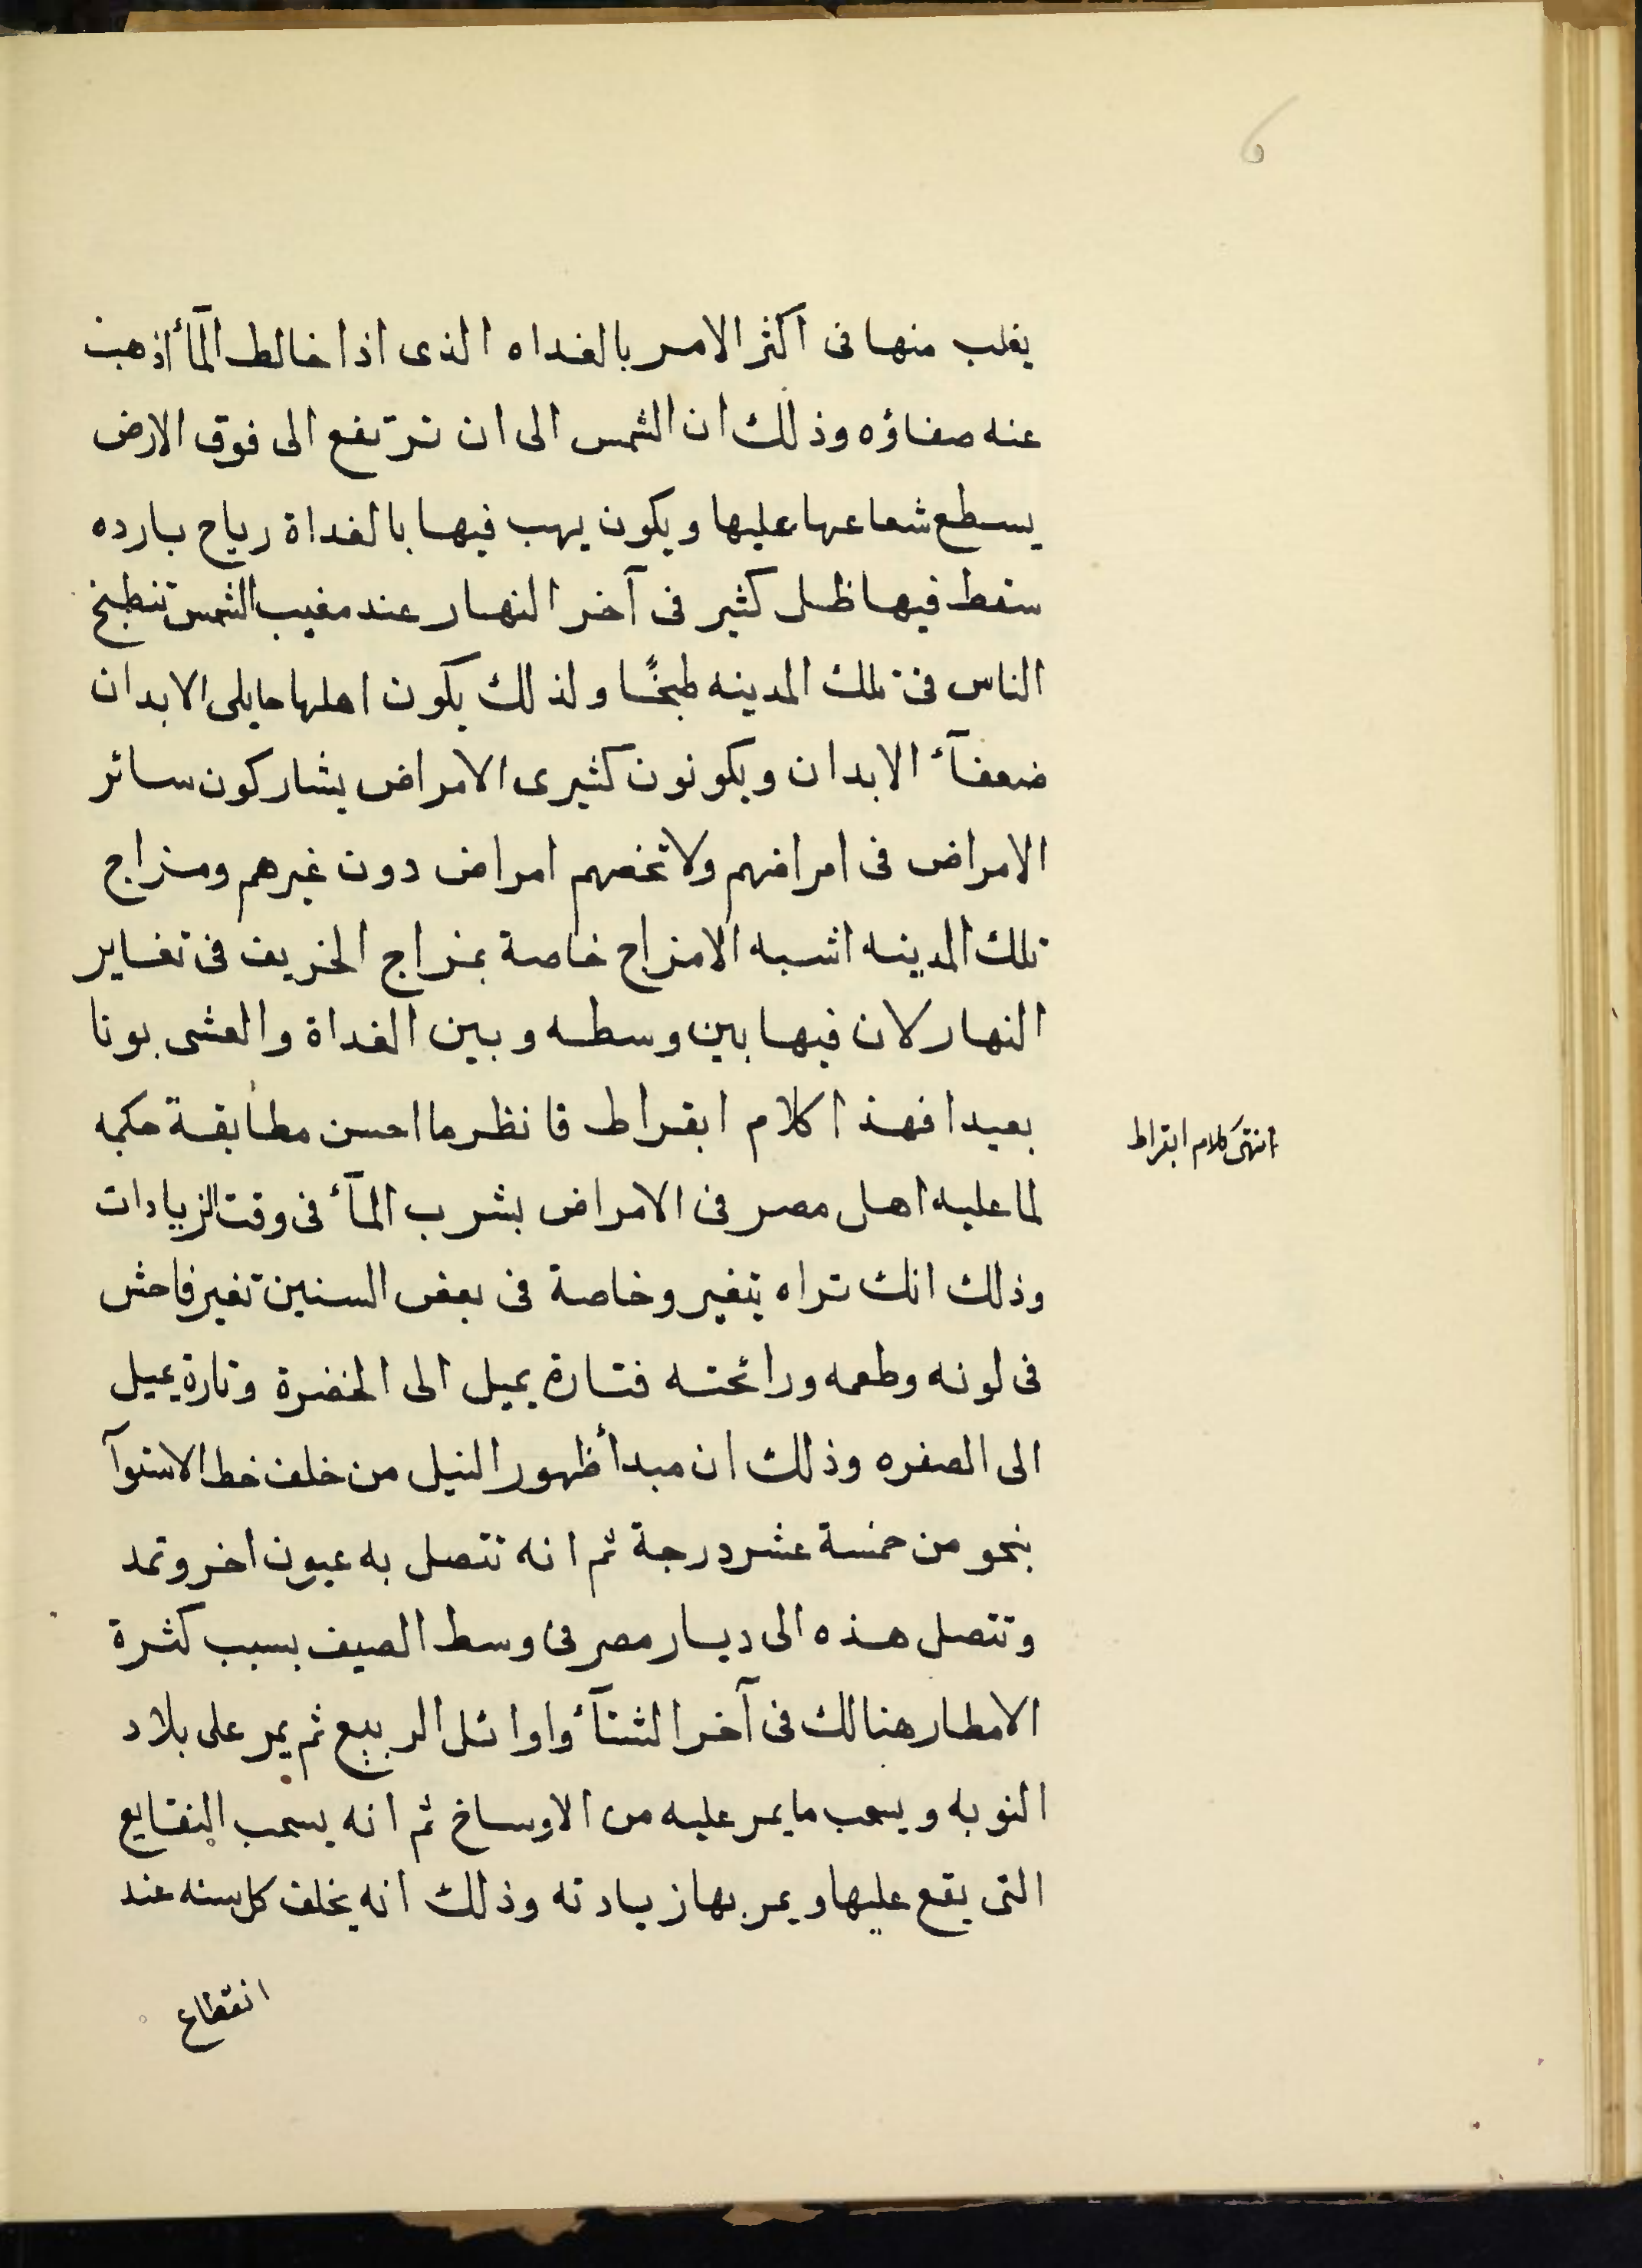 6
يغلب منها فى اكثر الامر بالغداه الذى اذا خالط المآء اذهبت
عنه صفاؤه وذلك ان الشمس الى ان ترتفع الى فوق الارض
يسطع شعاعها عليها ويكون يهب فيها بالغداة رياح بارده
سقط فيها ظل كثير فى آخر النهار عند مغيب الشمس تنطبخ
الناس فى تلك المدينه طبخًا ولذلك يكون اهلها حايلى الابدان
ضعفآء الابدان ويكونون كثيرى الامراض يشاركون سائر
الامراض فى امراضهم ولا تخصهم امراض دون غيرهم ومزاج
تلك المدينه اشبه الامزاج خاصة بمزاج الخريف فى تغاير
النهار لان فيها بين وسطه وبين الغداة والعشى بونا
بعيدا فهذا كلام ابقراط فانظر ما احسن مطابقة حكمه
انتهى كلام ابقراط
لما عليه اهل مصر فى الامراض بشرب المآء فى وقت الزيادات
وذلك انك تراه يتغير وخاصة فى بعض السنين تغير فاحش
فى لونه وطعمه ورائحته فتارة يميل الى الخضرة وتارة يميل
الى الصفره وذلك ان مبدأ ظهور النيل من خلف خط الاستوآ
بنحو من خمسة عشر درجة ثم انه تتصل به عيون اخر وتمد
وتتصل هذه الى ديار مصر فى وسط الصيف بسبب كثرة
الامطار هنالك فى آخر الشتآء واوائل الربيع ثم يمر على بلاد
النوبه ويسحب ما يمر عليه من الاوساخ ثم انه يسحب النقايع
التى يقع عليها ويمر بها زيادته وذلك انه يخلف كل سنه عند
انقطاع